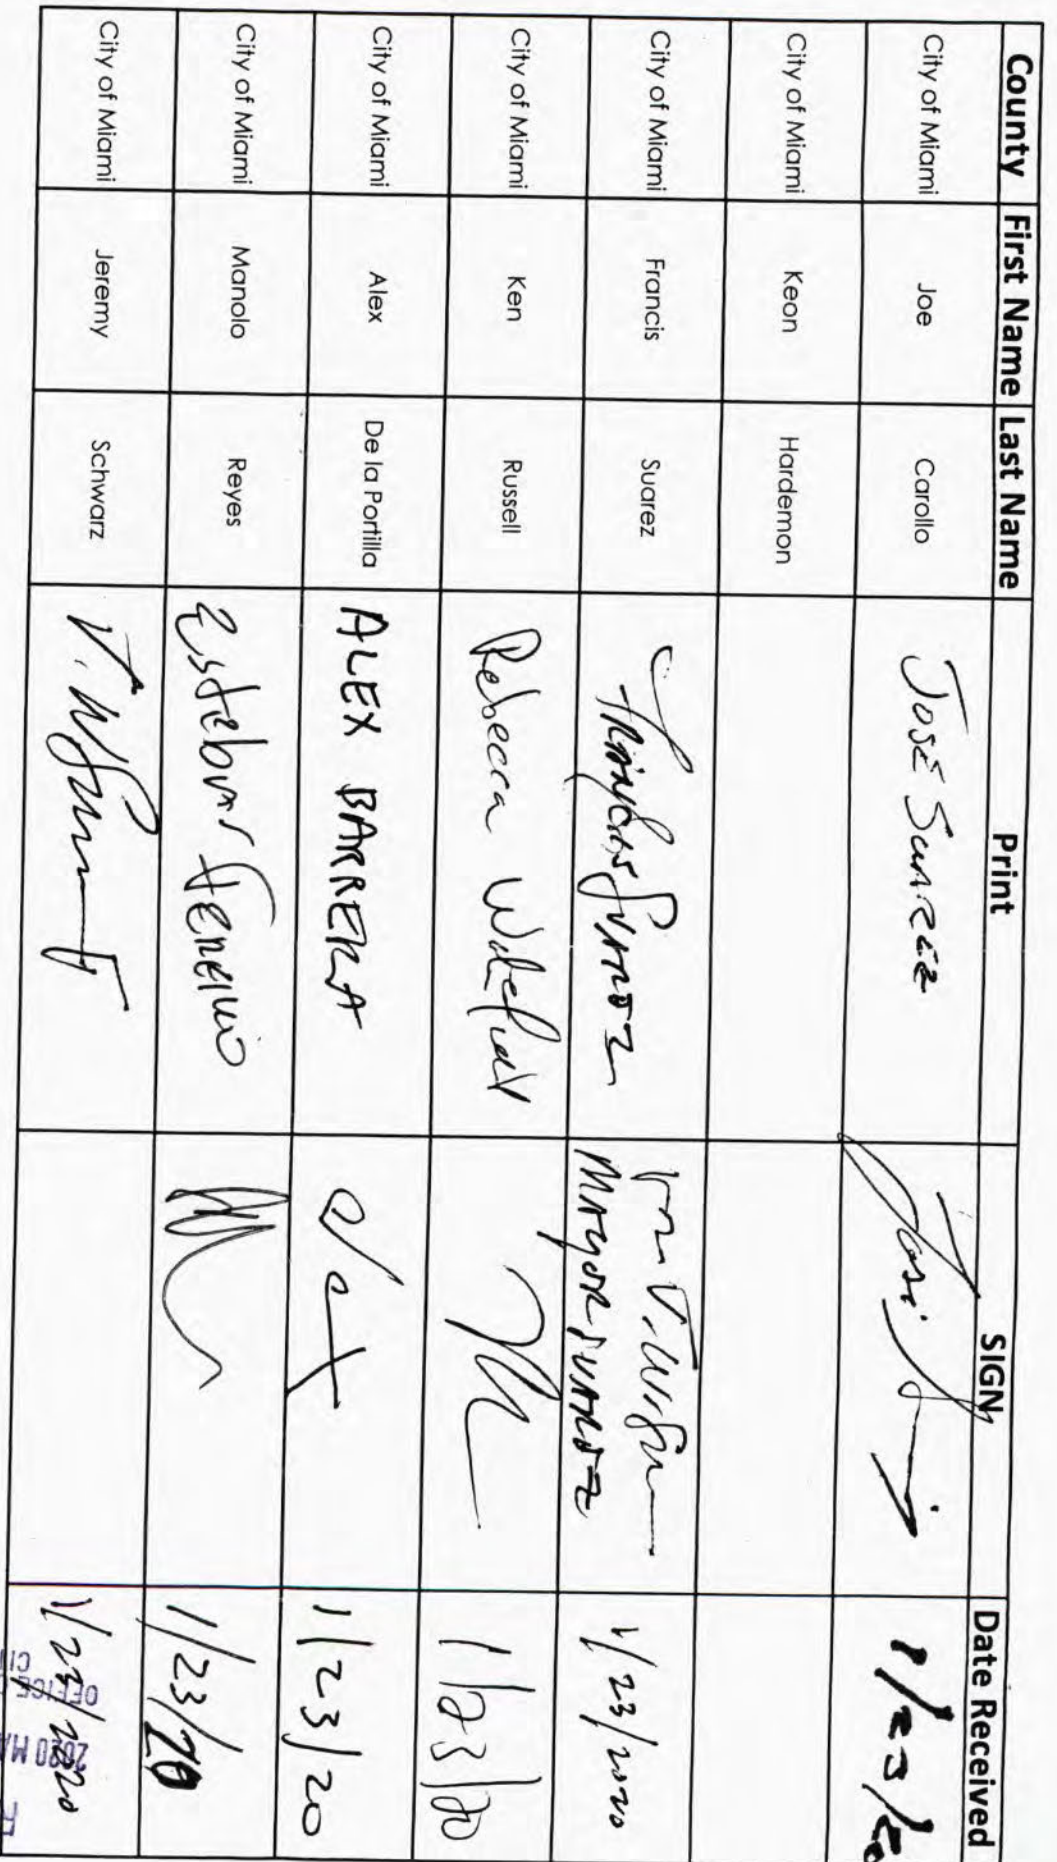 County First Name Last Name Print SIGN Date Received
City of Miami Joe Carollo José Suarez 1/23/20
City of Miami Keon Hardemon
City of Miami Francis Suarez Francis Suarez for MAYOR SUAREZ 1/23/2020
City of Miami Ken Russell Rebecca Wakefield 1/23/20
City of Miami Alex De la Portilla ALEX BARRERA 1/23/20
City of Miami Manolo Reyes Esteban Ferreiro 1/23/20
City of Miami Jeremy Schwarz 1/23/2020
OFFICE
2020